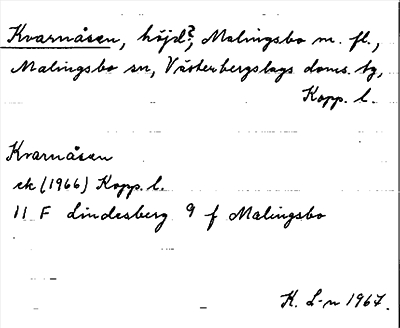 Kvarnåsen, höjd?, Malingsbo m. fl.,
Malingsbo sn, Västerbergslags doms. tg,
Kopp. l.
Kvarnåsen
ek (1966) Kopp. l.
11 F Lindesberg 9 f Malingsbo
K. L-n 1967.